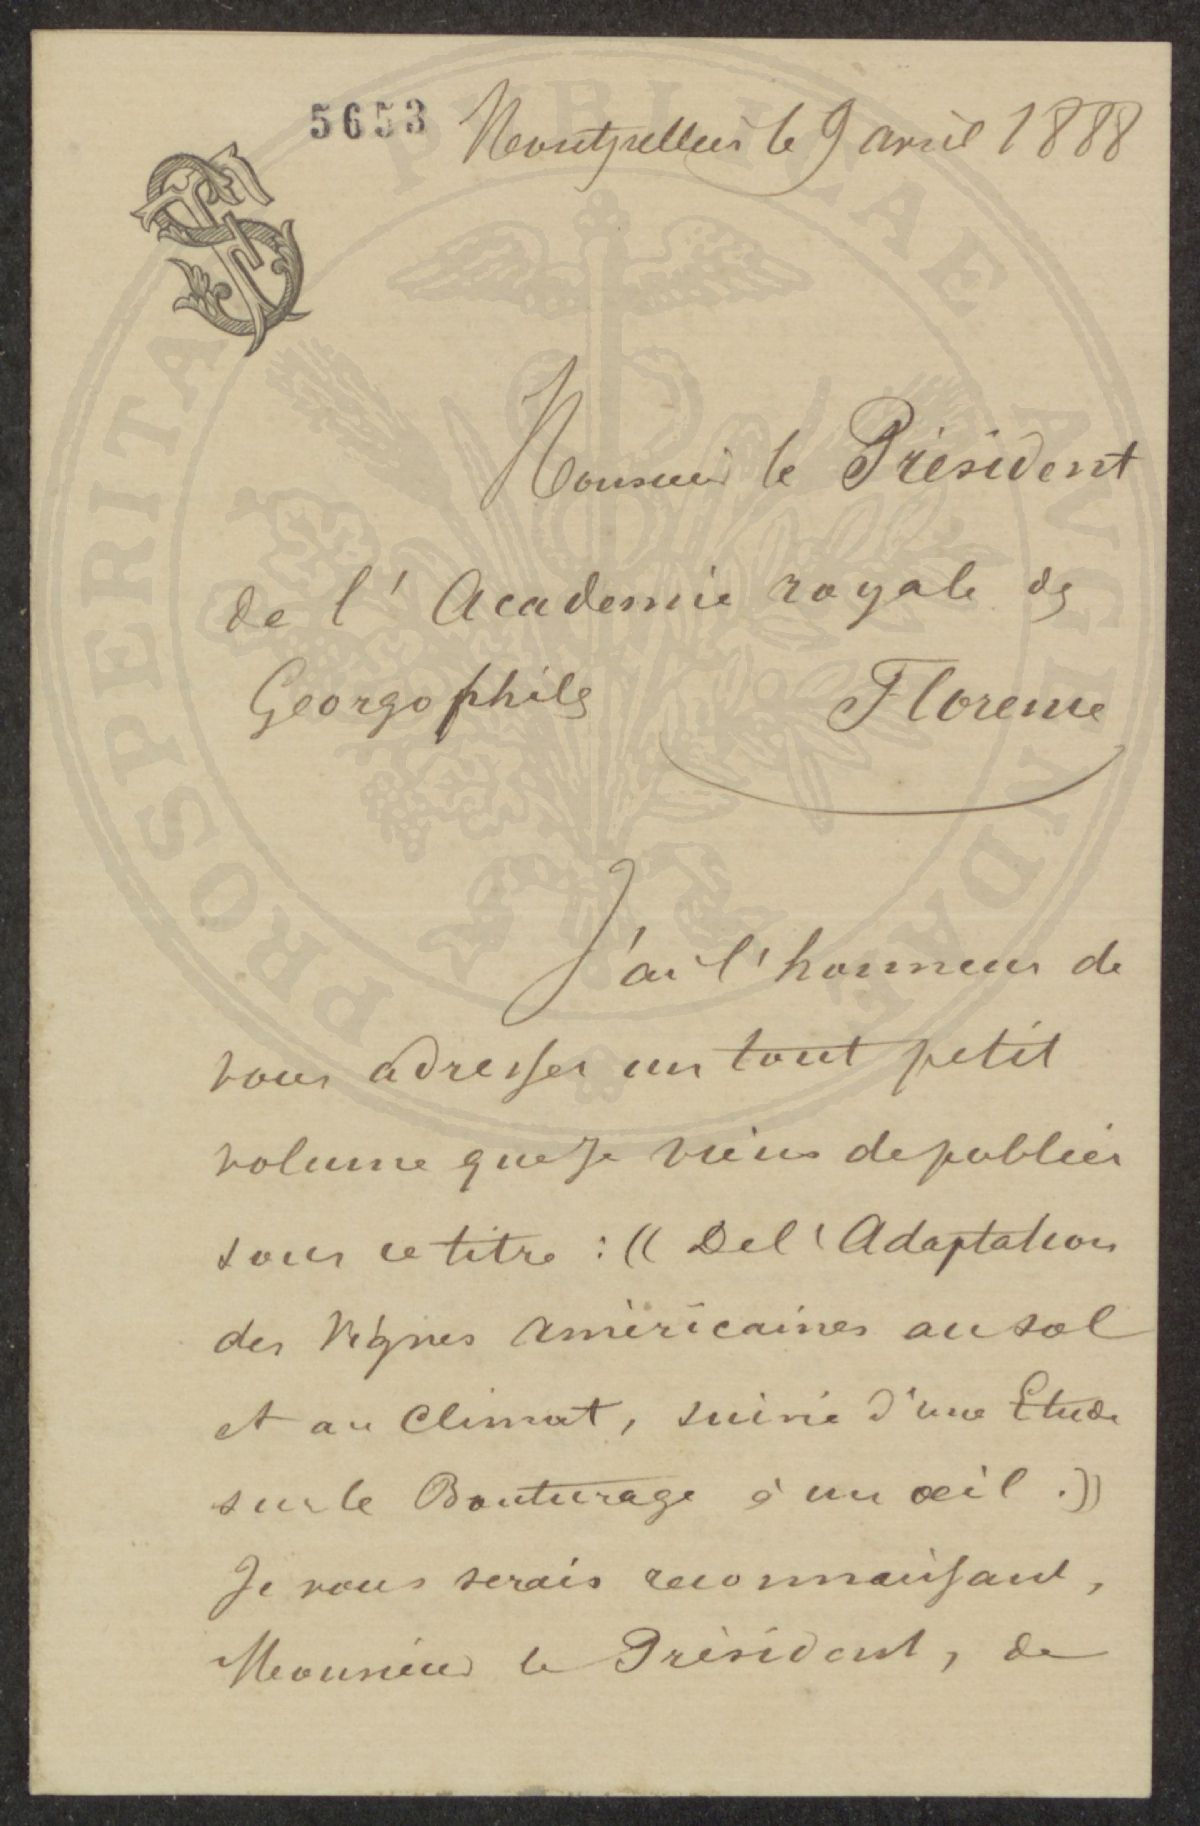 5653
Montpellier le 9 avril 1888
Monsieur le Président
de l'Academie royale des
Georgophiles Florence
J'ai l'honneur de
vous adresser un tout petit
volume que je viens de publier
sous ce titre : (( De l'Adaptation
des Vignes américaines au sol
et au Climat, suivie d'une Etude
sur le Bouturage à un œil . ))
Je vous serais reconnaissant,
Monsieur le Président, de
PROSPERITATI PVBLICAE AVGENDAE